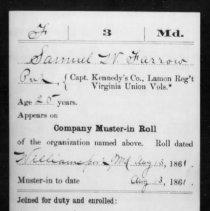 F 3 Md.
Samuel W. Furrow
Pvt, { Capt. Kennedy's Co., Lamon Reg't
Virginia Union Vols.*
Age 25 years.
Appears on
Company Muster-in Roll
of the organization named above. Roll dated
Williamsport, Md Aug 13, 1861.
Muster-in to date Aug 13, 1861.
Joined for duty and enrolled: